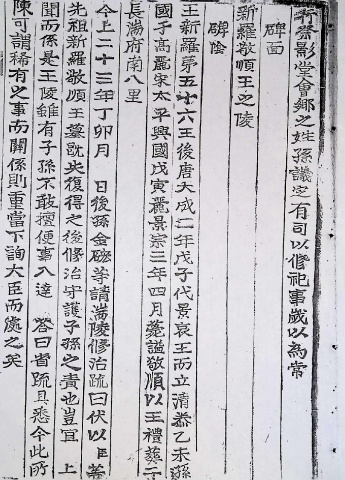 行祭影堂會鄉之姓孫議定有司以修祀事歲以為常
碑面
新羅敬順王之陵
碑陰
王新羅第五十六王後唐天成二年戊子代景哀王而立清泰乙未遜
國于高麗宋太平興國戊寅麗景宗三年四月薨謚敬順以王禮葬于
長湍府南八里
今上二十三年丁卯月 日後孫金礠等請湍陵修治疏曰伏以臣等
先祖新羅敬順王墓既失復得之後修治守護子孫之責也豈宜 上
聞而係是王陵雖有子孫不敢擅便事入達 答曰省疏具悉今此所
陳可謂稀有之事而關係則重當下詢大臣而處之矣